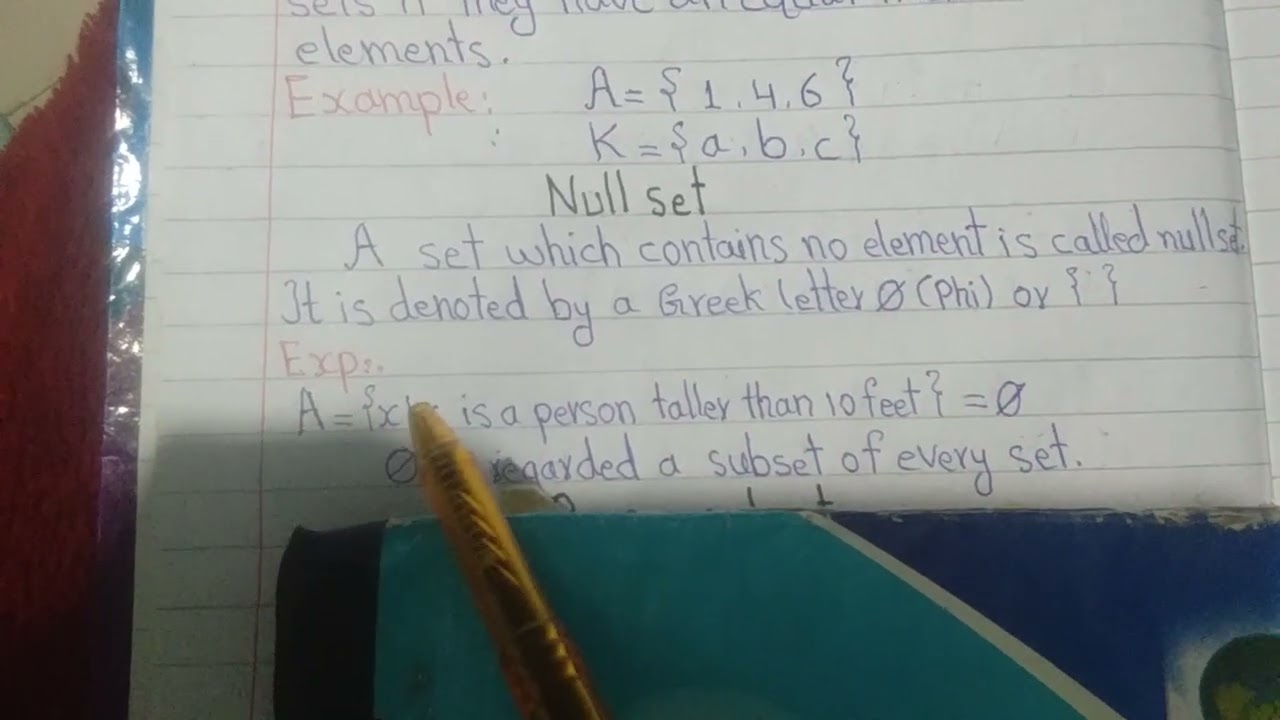 sets if they have an equal
elements.
Example: A = { 1, 4, 6 }
: K = { a, b, c }
Null set
A set which contains no element is called null set.
It is denoted by a Greek letter Ø (Phi) or { }
Exp:.
A = { x | is a person taller than 10 feet } = Ø
Ø regarded a subset of every set.